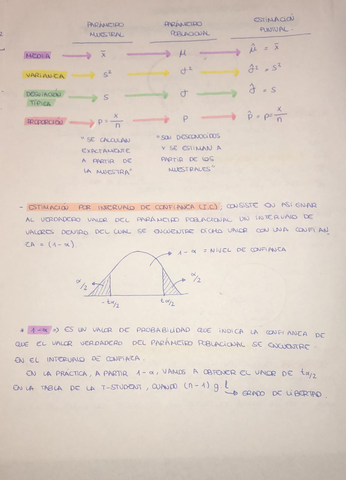 PARÁMETRO MUESTRAL
PARÁMETRO POBLACIONAL
ESTIMACIÓN PUNTUAL
MEDIA → x̄ → μ → μ̂ = x̄
VARIANZA → s² → σ² → σ̂² = s²
DESVIACIÓN TÍPICA → s → σ → σ̂ = s
PROPORCIÓN → p = x/n → P → p̂ = p = x/n
"SE CALCULAN EXACTAMENTE A PARTIR DE LA MUESTRA"
"SON DESCONOCIDOS Y SE ESTIMAN A PARTIR DE LOS MUESTRALES"
- ESTIMACIÓN POR INTERVALO DE CONFIANZA (I.C): CONSISTE EN ASIGNAR
AL VERDADERO VALOR DEL PARÁMETRO POBLACIONAL UN INTERVALO DE
VALORES DENTRO DEL CUAL SE ENCUENTRE DICHO VALOR CON UNA CONFIAN
ZA = (1-α).
1-α = NIVEL DE CONFIANZA
α/2
α/2
-tα/2
tα/2
* 1-α ⇒ ES UN VALOR DE PROBABILIDAD QUE INDICA LA CONFIANZA DE
QUE EL VALOR VERDADERO DEL PARÁMETRO POBLACIONAL SE ENCUENTRE
EN EL INTERVALO DE CONFIANZA.
EN LA PRÁCTICA, A PARTIR 1-α, VAMOS A OBTENER EL VALOR DE tα/2
EN LA TABLA DE LA T-STUDENT, CUANDO (n-1) g.l
→ GRADO DE LIBERTAD.